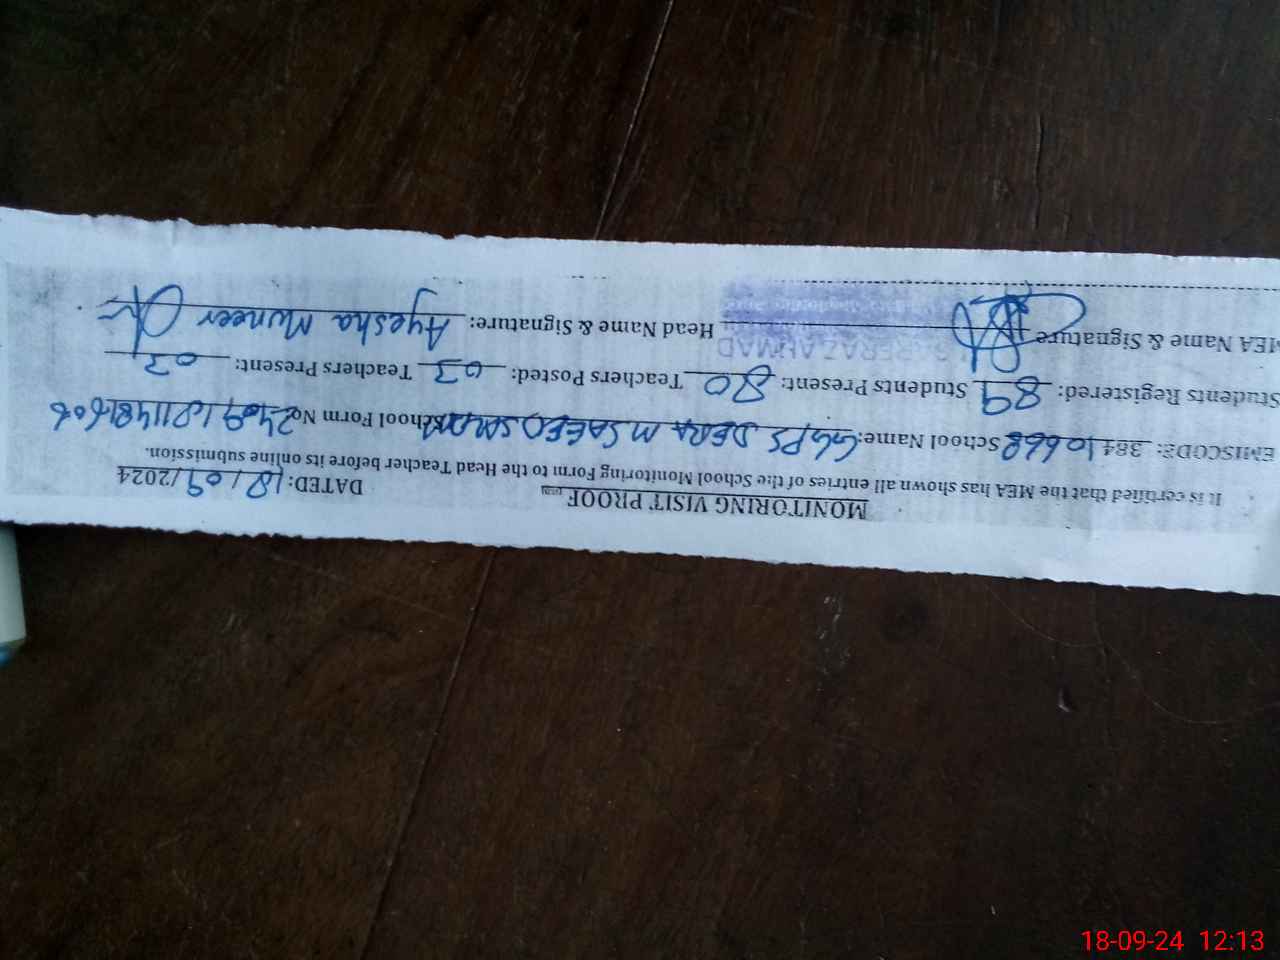 MONITORING VISIT PROOF DATED: 18/09/2024
It is certified that the MEA has shown all entries of the School Monitoring Form to the Head Teacher before its online submission.
EMISCODE: 38410668 School Name: GGPS DERA M SAEED School Form No
Students Registered: 89 Students Present: 80 Teachers Posted: 03 Teachers Present: 03
MEA Name & Signature Head Name & Signature: Ayesha Muneer
18-09-24 12:13